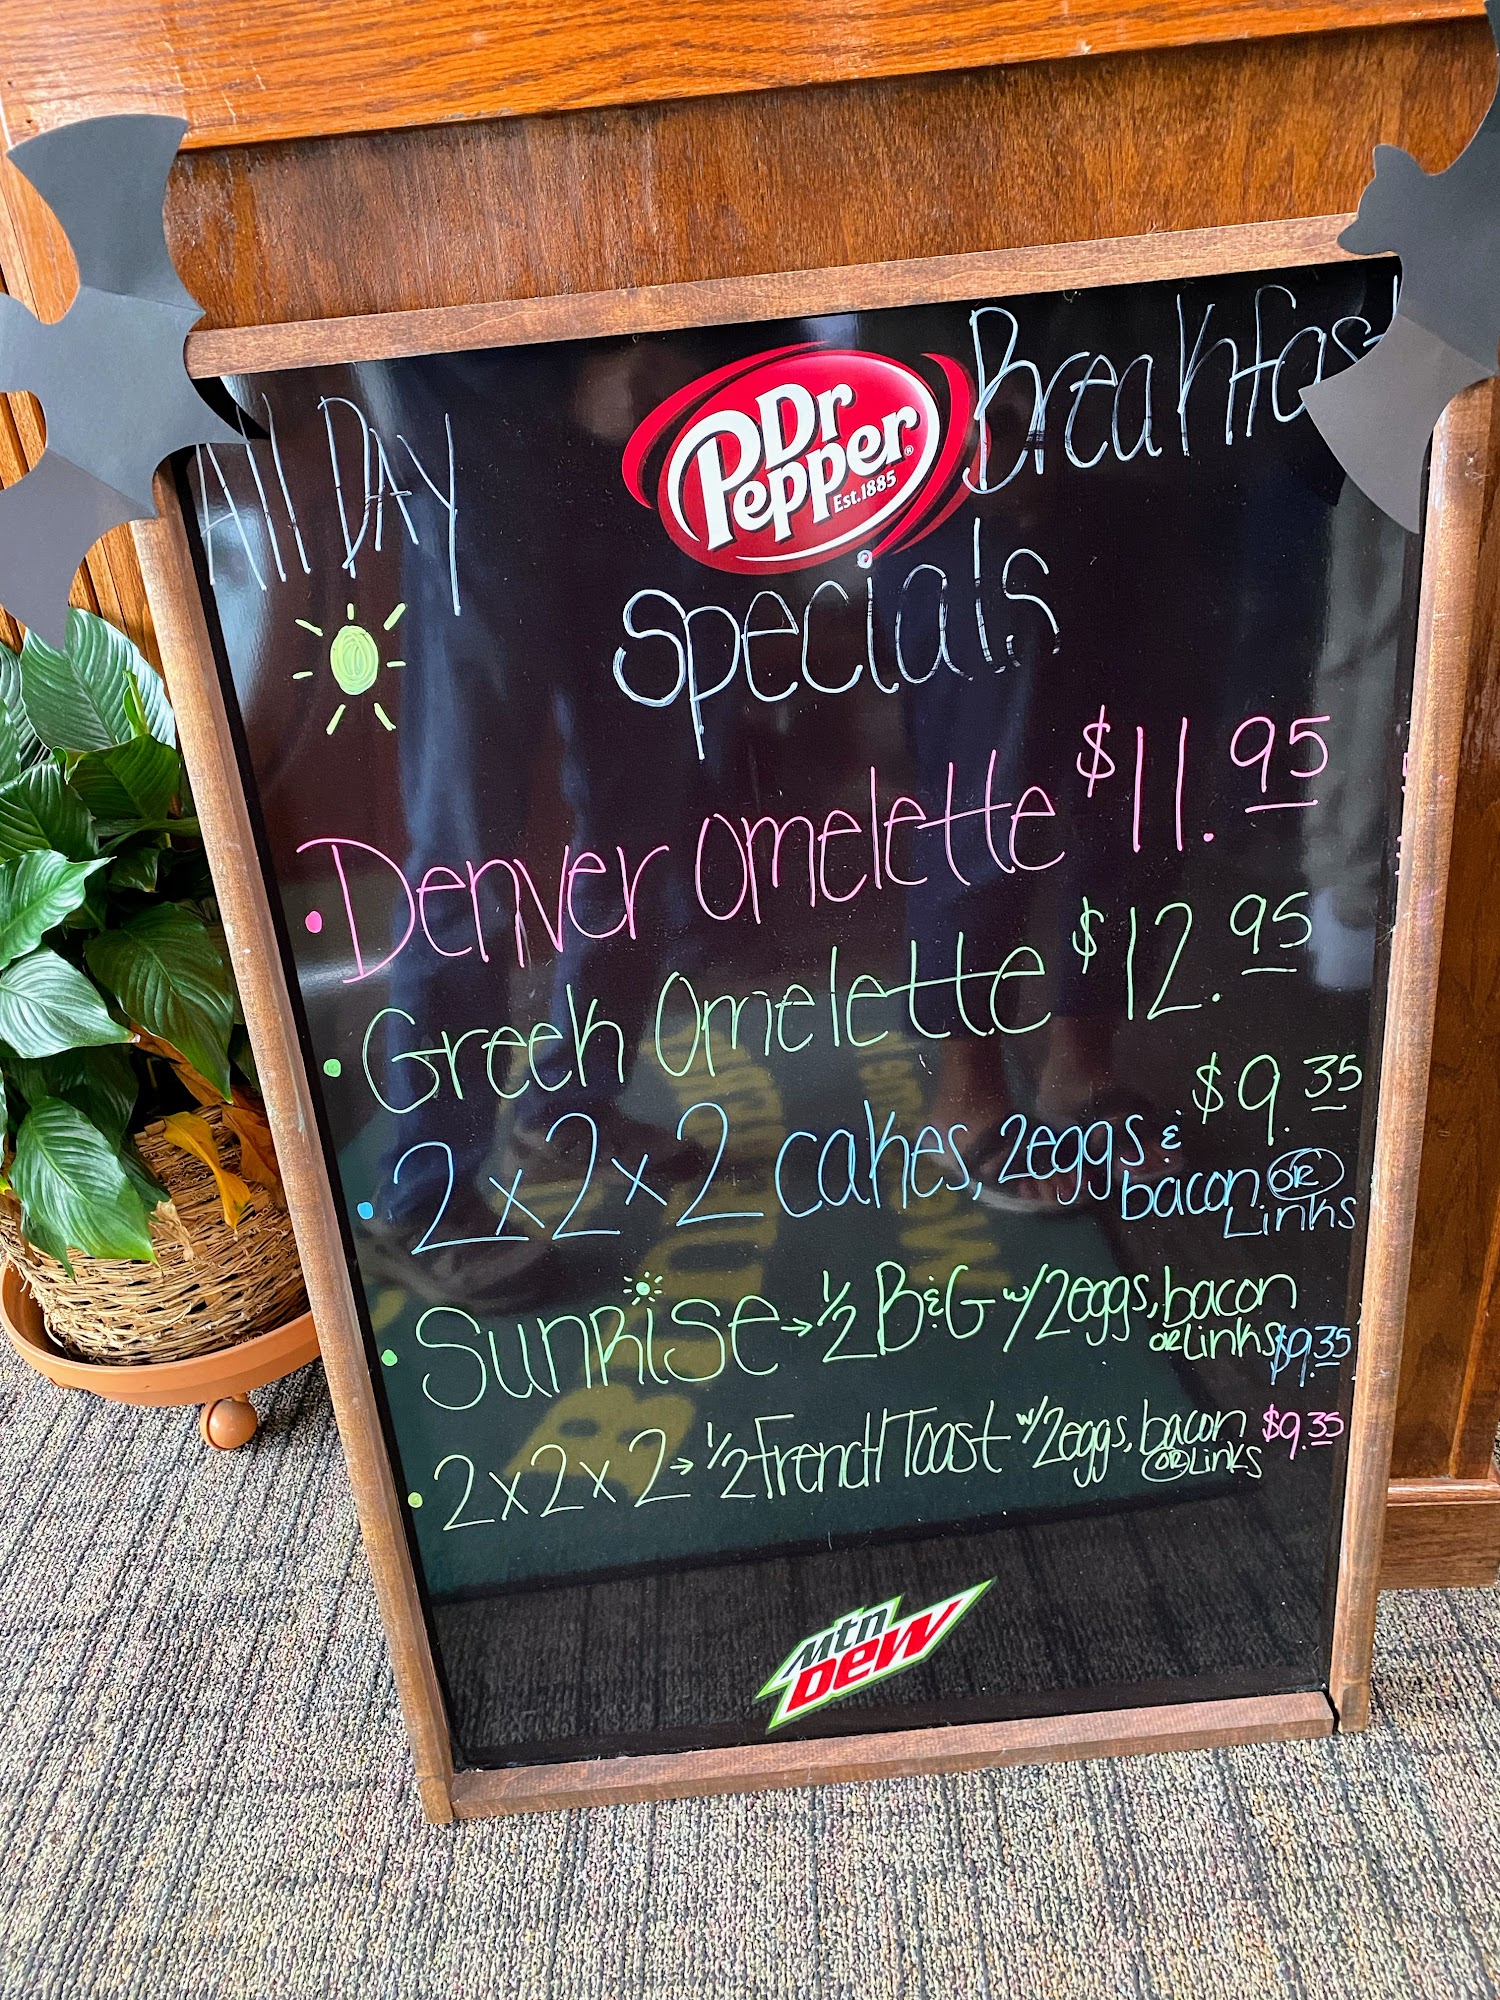 All DAY Breakfast
Dr
Pepper
Est. 1885
Specials
• Denver Omelette $11.95
• Greek Omelette $12.95
• 2 x 2 x 2 cakes, 2eggs & $9.35
bacon OR
Links
• SunRise → 1/2 B&G w/ 2eggs, bacon
OR Links $9.35
• 2 x 2 x 2 → 1/2 French Toast w/ 2eggs, bacon $9.35
OR Links
mtn
DEW